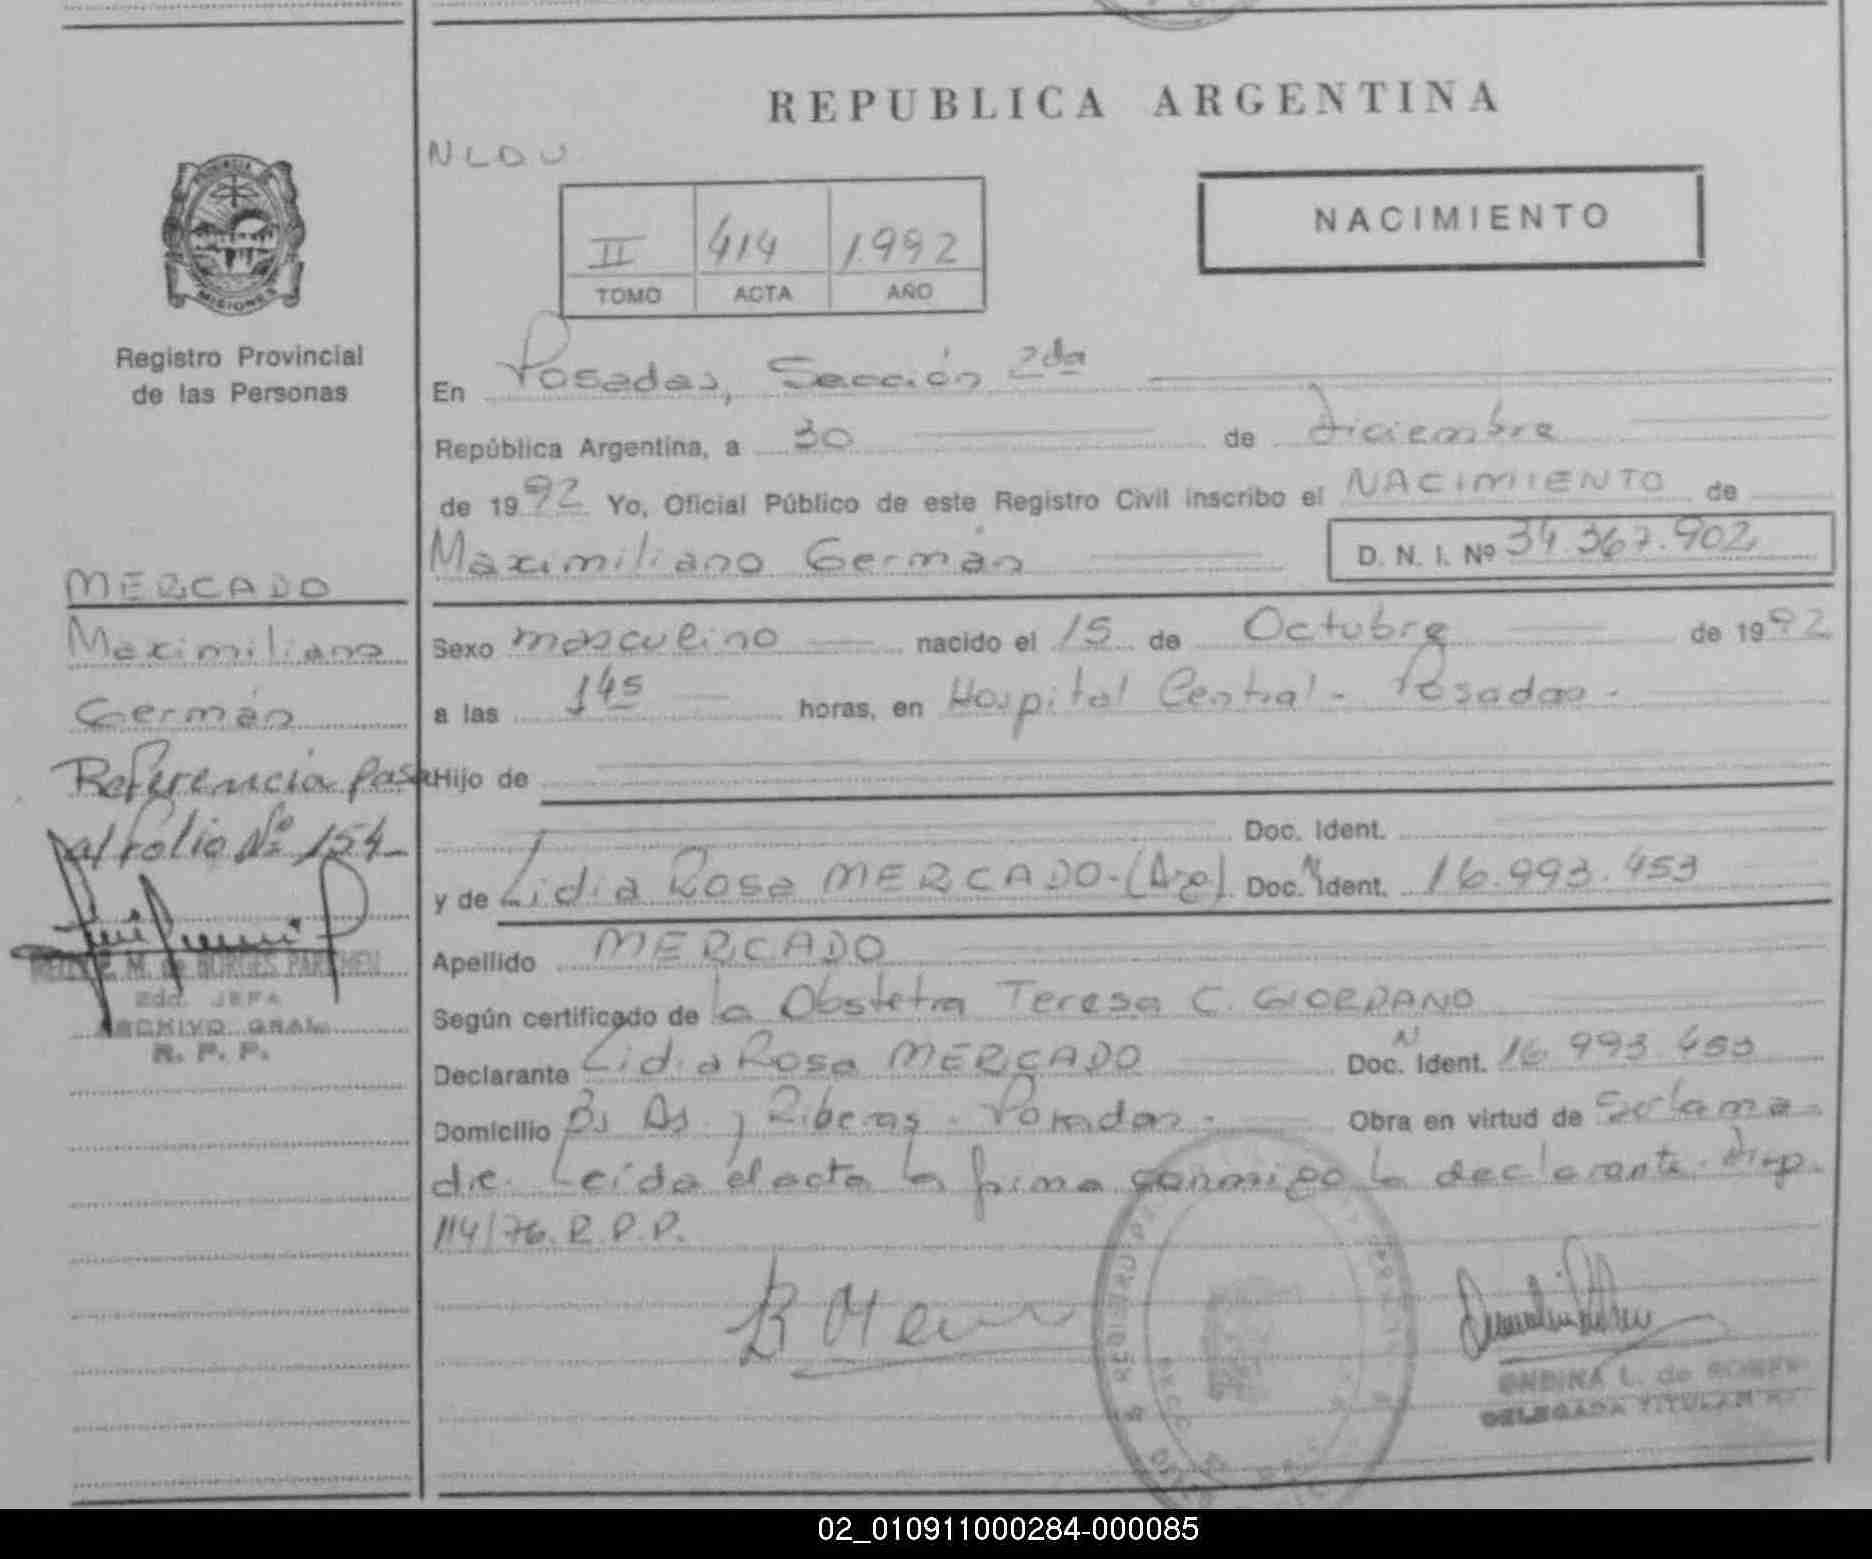 REPUBLICA ARGENTINA
NLDU
II 414 1992
TOMO ACTA AÑO
NACIMIENTO
PROVINCIA
MISIONES
Registro Provincial
de las Personas
En Posadas, Sección 2da
República Argentina, a 30 de diciembre
de 1992 Yo, Oficial Público de este Registro Civil inscribo el NACIMIENTO de
Maximiliano Germán D. N. I. Nº 34.367.902
Sexo masculino nacido el 15 de Octubre de 1992
a las 145 horas, en Hospital Central - Posadas.
Hijo de
Doc. Ident.
y de Lidia Rosa MERCADO-(Arg) Doc. N Ident. 16.993.453
Apellido MERCADO
Según certificado de la Obstetra Teresa C. GIORDANO
Declarante Lidia Rosa MERCADO Doc. N Ident. 16 993 453
Domicilio Bs As. y Riberas - Posadas. Obra en virtud de Sulama-
dre. Leída el acta la firma conmigo la declarante. Disp.
114/76. R.P.P.
MERCADO
Maximiliano
Germán
Referencia pasa
al folio Nº 154
M. de BORGES
Edo. JEFA
ARCHIVO GRAL.
R. P. P.
ONDINA L. de
DELEGADA TITULAR
02_010911000284-000085